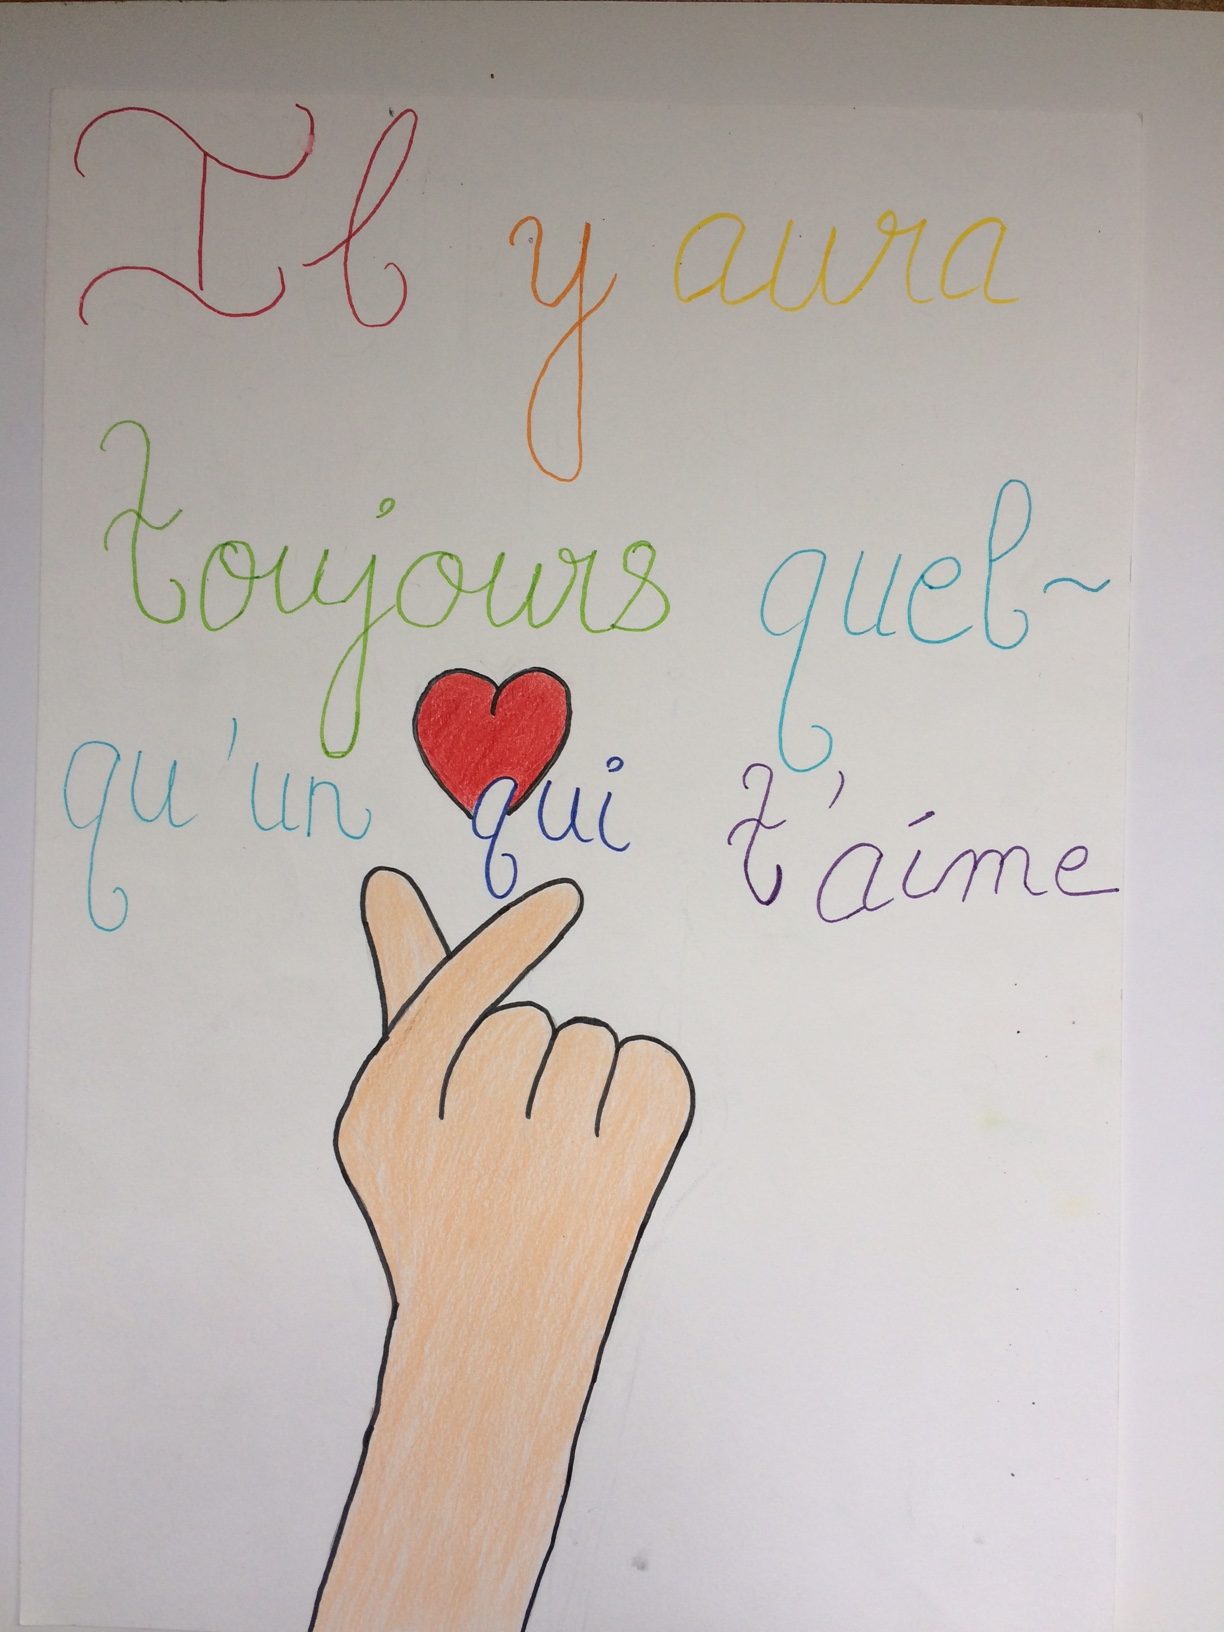 Il y aura
toujours quel~
qu'un qui t'aime